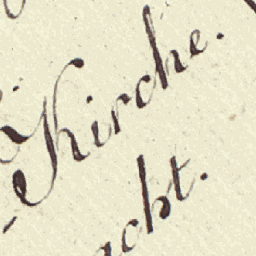 Kirche.
acht.